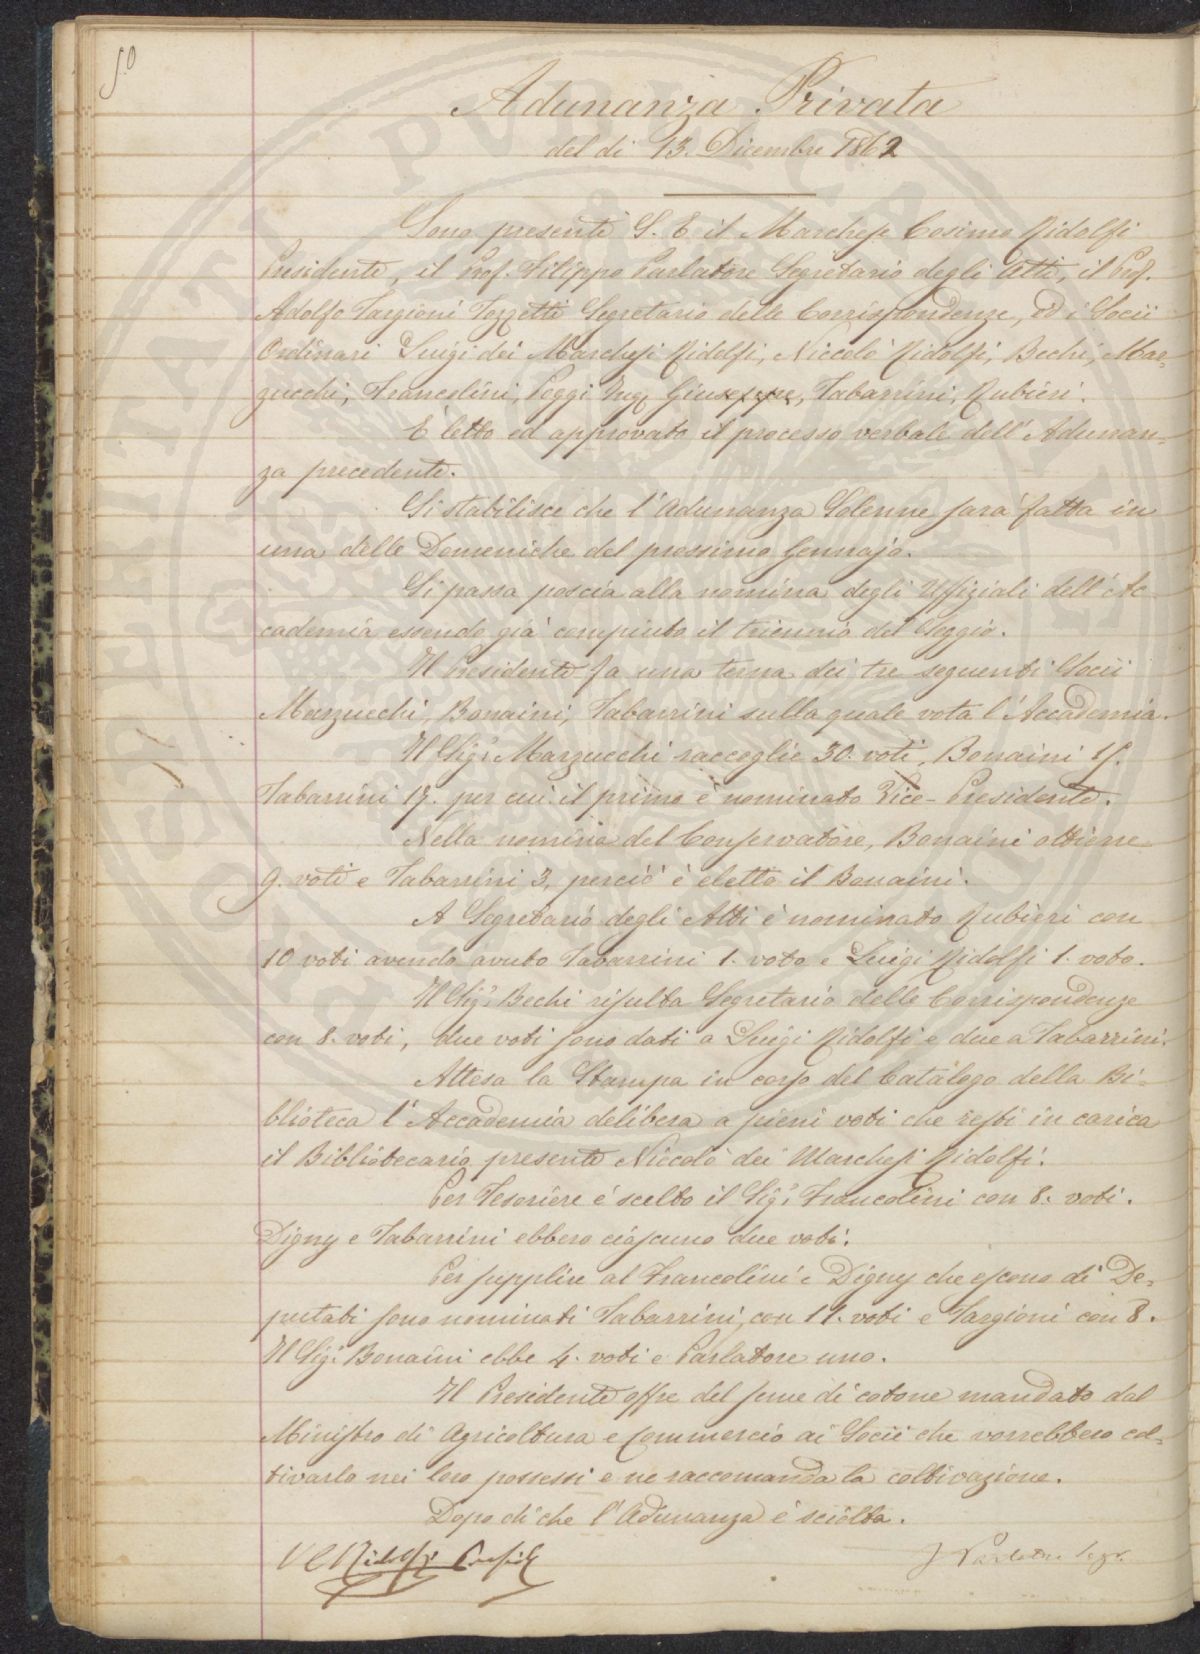 50
Adunanza Privata
del dì 13. Dicembre 1862
Sono presenti S. E. il Marchese Cosimo Ridolfi
Presidente, il Prof. Filippo Parlatore Segretario degli Atti, il Prof.
Adolfo Targioni Tozzetti Segretario delle Corrispondenze, ed i Socii
Ordinari Luigi dei Marchesi Ridolfi, Niccolò Ridolfi, Bechi, Mar=
zucchi, Francolini, Poggi Ing. Giuseppe, Tabarrini, Rubieri.
È letto ed approvato il processo verbale dell'Adunan=
za precedente.
Si stabilisce che l'Adunanza Solenne sarà fatta in
una delle Domeniche del prossimo Gennajo.
Si passa poscia alla nomina degli Uffiziali dell'Ac
cademia essendo già compiuto il triennio del Seggio.
Il Presidente fa una terna dei tre seguenti Socii
Marzucchi, Bonaini, Tabarrini sulla quale vota l'Accademia.
Il Sigr. Marzucchi raccoglie 30. voti, Bonaini 15.
Tabarrini 17. per cui il primo è nominato Vice-Presidente.
Nella nomina del Conservatore, Bonaini ottiene
9. voti e Tabarrini 3, perciò è eletto il Bonaini.
A Segretario degli Atti è nominato Rubieri con
10 voti avendo avuto Tabarrini 1. voto e Luigi Ridolfi 1. voto.
Il Sigr. Bechi risulta Segretario delle Corrispondenze
con 8. voti, due voti sono dati a Luigi Ridolfi e due a Tabarrini.
Attesa la Stampa in corso del Catalogo della Bi=
blioteca l'Accademia delibera a pieni voti che resti in carica
il Bibliotecario presente Niccolò dei Marchesi Ridolfi.
Per Tesoriere è scelto il Sigr. Francolini con 8. voti.
Digny e Tabarrini ebbero ciascuno due voti.
Per supplire al Francolini e Digny che escono di De=
putati sono nominati Tabarrini con 11. voti e Targioni con 8.
Il Sigr. Bonaini ebbe 4. voti e Parlatore uno.
Il Presidente offre del seme di cotone mandato dal
Ministro di Agricoltura e Commercio ai Socii che vorrebbero col=
tivarlo nei loro possessi e ne raccomanda la coltivazione.
Dopo di che l'Adunanza è sciolta.
V C Ridolfi Presid.
F Parlatore Segr.